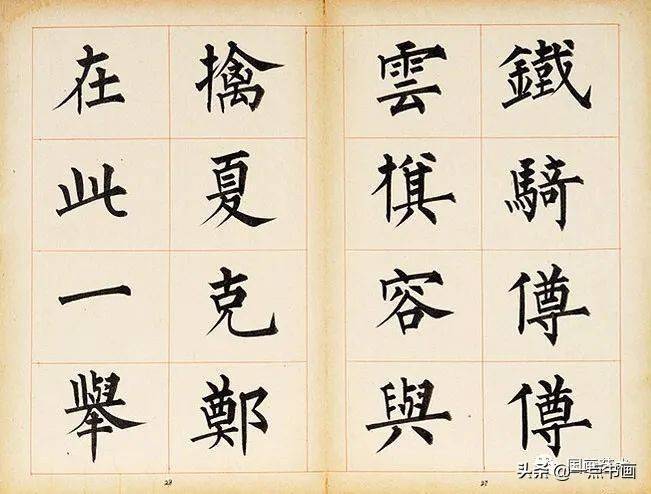 鐵騎僔僔
雲旗容與
擒夏克鄭
在此一舉
27
28
头条@一点书画